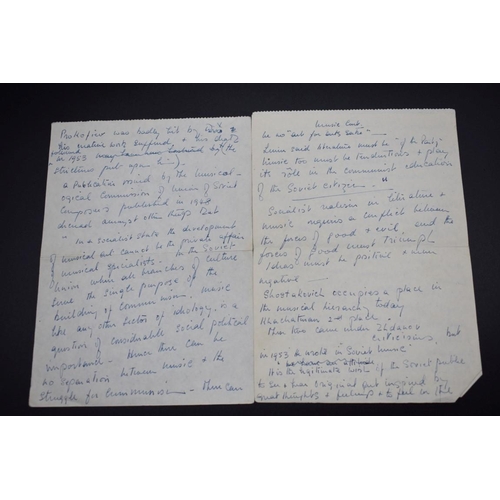 Prokofiev was badly hit by this &
his mature work suffered & his death
in 1953 may have been hastened by the
strictures put upon him).
- a Publication issued by the musical-
ogical Commission of Union of Soviet
Composers published in 1964
demands amongst other things that
"In a socialist state the development
of musical art cannot be the private affair
of musical specialists. In the Soviet
Union where all branches of culture
serve the single purpose of the
building of communism. music
like any other sector of ideology, is a
question of considerable social political
importance. Hence there can be
no separation between music & the
struggle for Communism - there can
Music Cont.
be no "art for art's sake" -
Lenin said literature must be "of the Party"
Music too must be tendentious & play
its role in the communist education
of the Soviet citizen."
Socialist realism in literature &
music requires a conflict between
the forces of good & evil, and the
forces of good must triumph
Ideas must be positive &
negative
Shostakovich occupies a place in
the musical hierarchy today
Khachaturian 2nd place
Then both came under Zhdanov
criticisms but
in 1953 he wrote in "Soviet Music"
"
It is the legitimate wish of the Soviet public
to see & hear original art inspired by
great thoughts & feelings & to feel in the